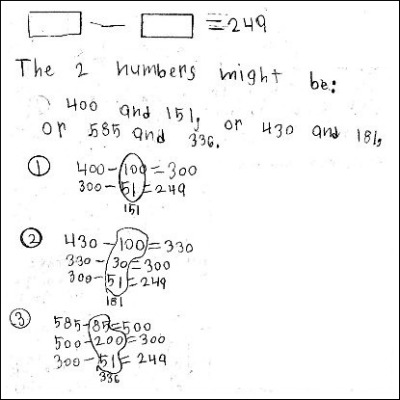 — = 249
The 2 numbers might be:
400 and 151,
or 585 and 336. or 430 and 181,
① 400 - 100 = 300
300 - 51 = 249
151
② 430 - 100 = 330
330 - 30 = 300
300 - 51 = 249
181
③ 585 - 85 = 500
500 - 200 = 300
300 - 51 = 249
336